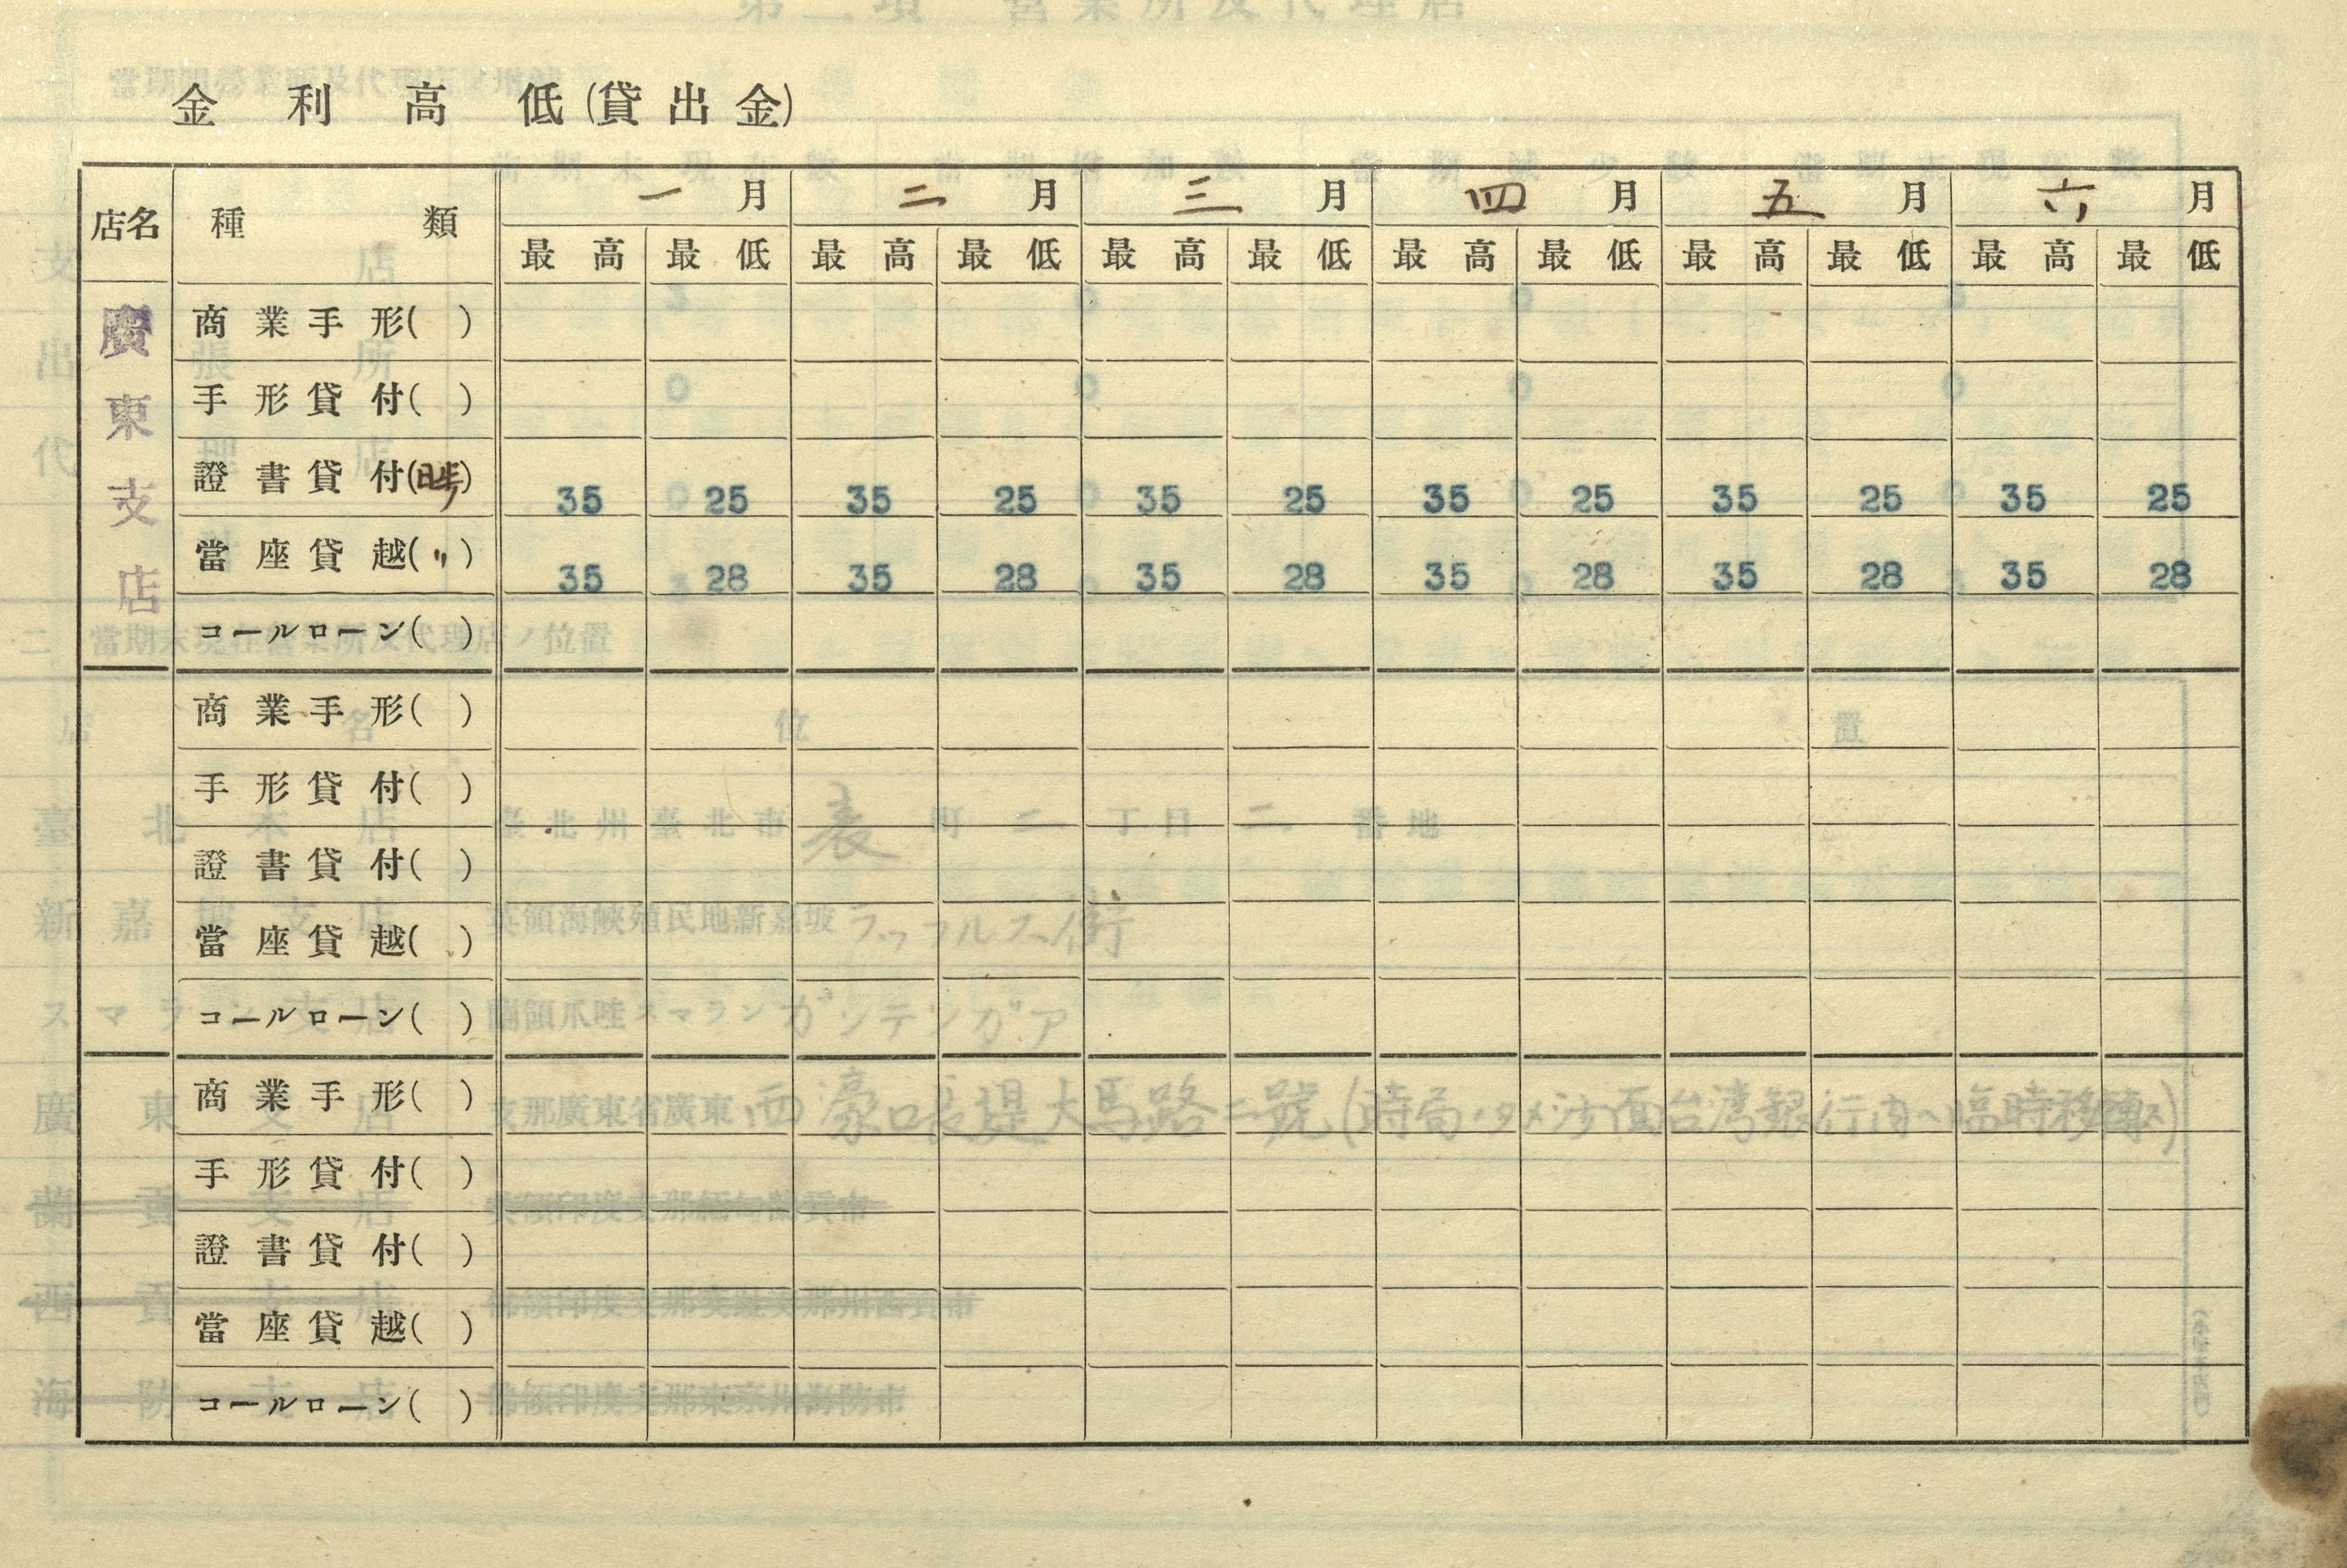 金利高低(貸出金)
店名 種類 一月 二月 三月 四月 五月 六月
最高 最低 最高 最低 最高 最低 最高 最低 最高 最低 最高 最低
廣東支店
商業手形( )
手形貸付( )
證書貸付( ) 35 25 35 25 35 25 35 25 35 25 35 25
當座貸越(〃) 35 28 35 28 35 28 35 28 35 28 35 28
コールローン( )
商業手形( )
手形貸付( )
證書貸付( )
當座貸越( )
コールローン( )
商業手形( )
手形貸付( )
證書貸付( )
當座貸越( )
コールローン( )